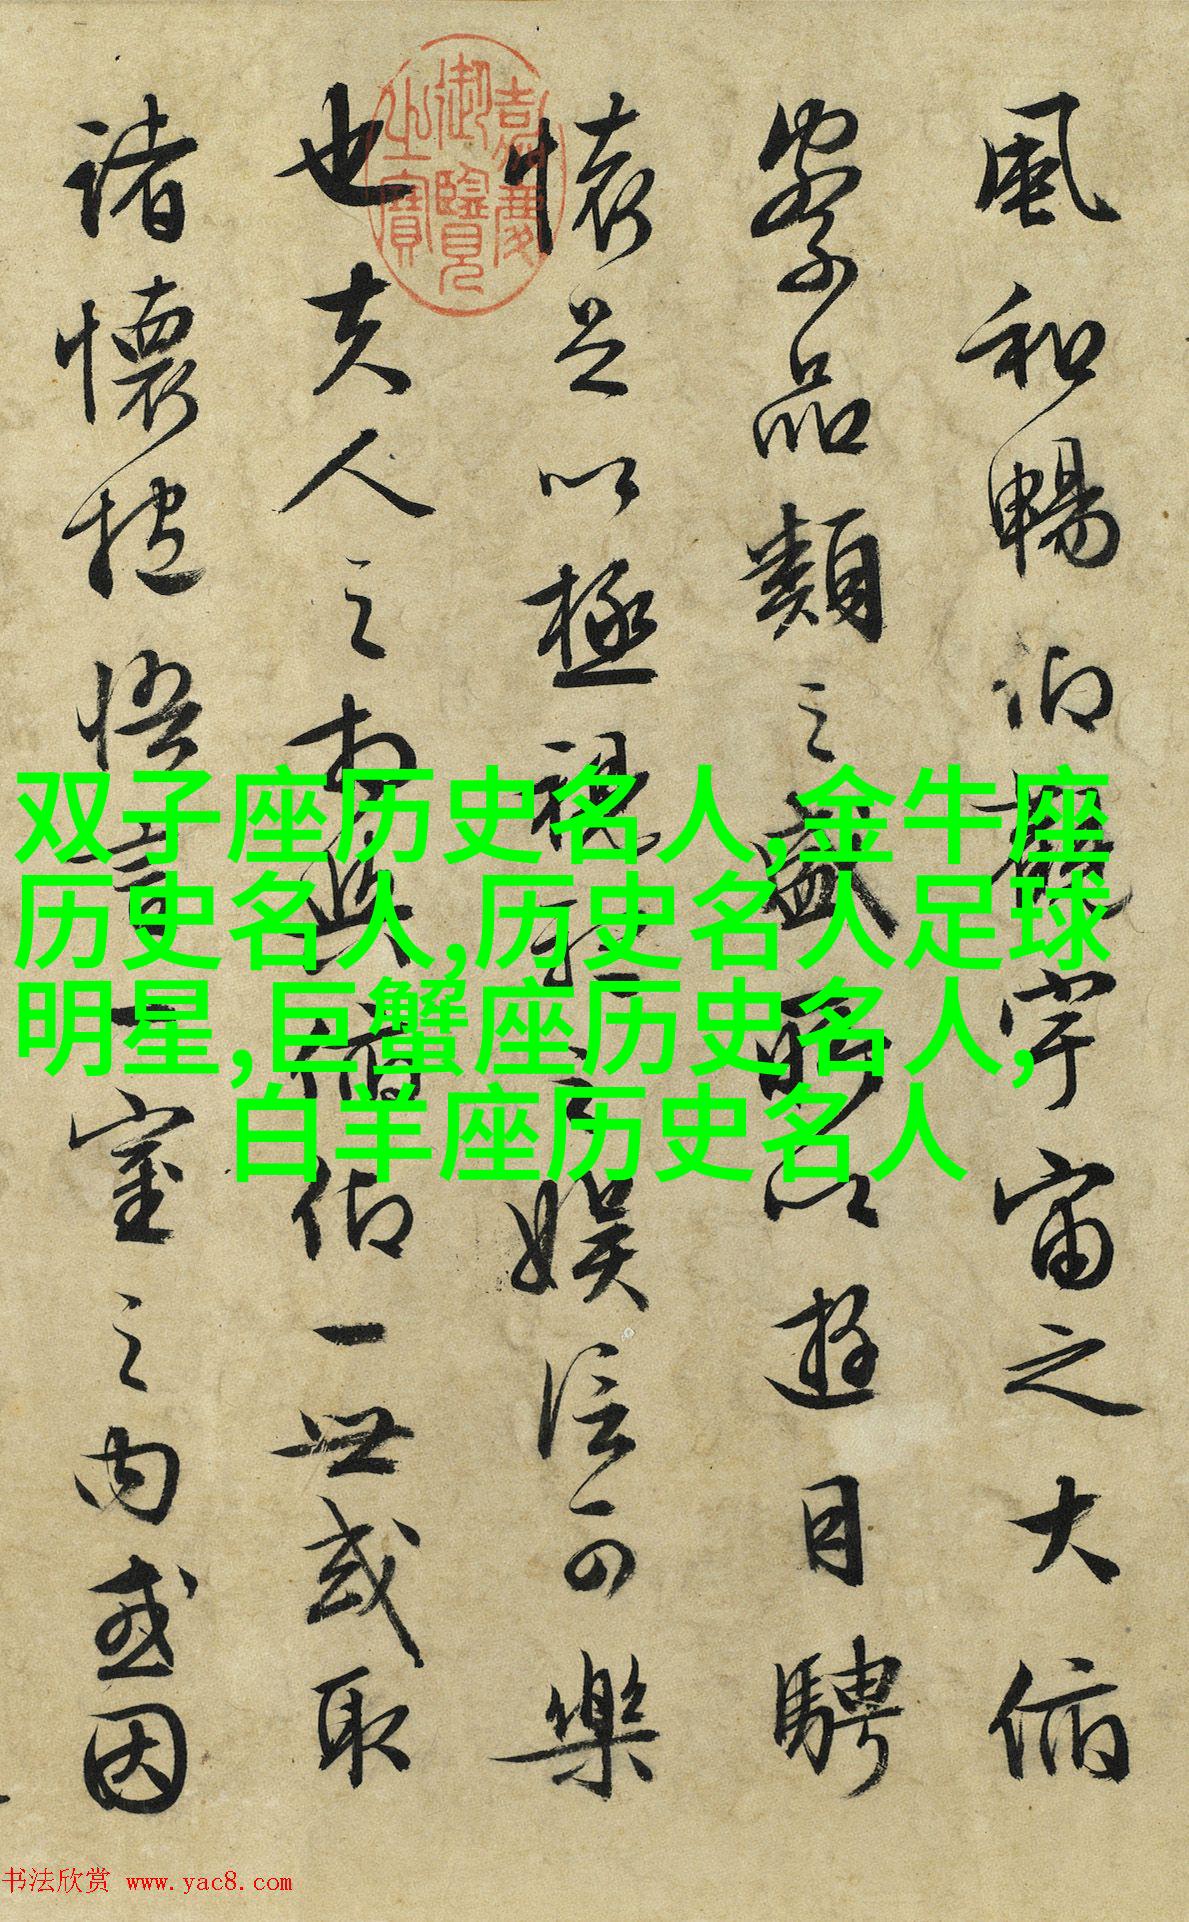 風和暢仰觀宇宙之大俯
察品類之盛所以遊目騁
懷足以極視聽之娛信可樂
也夫人之相與俯仰一世或取
諸懷抱悟言一室之內或因
嘉慶
御覽
之寶
双子座历史名人,金牛座
历史名人,历史名人足球
明星,巨蟹座历史名人,
白羊座历史名人
书法欣赏 www.yac8.com